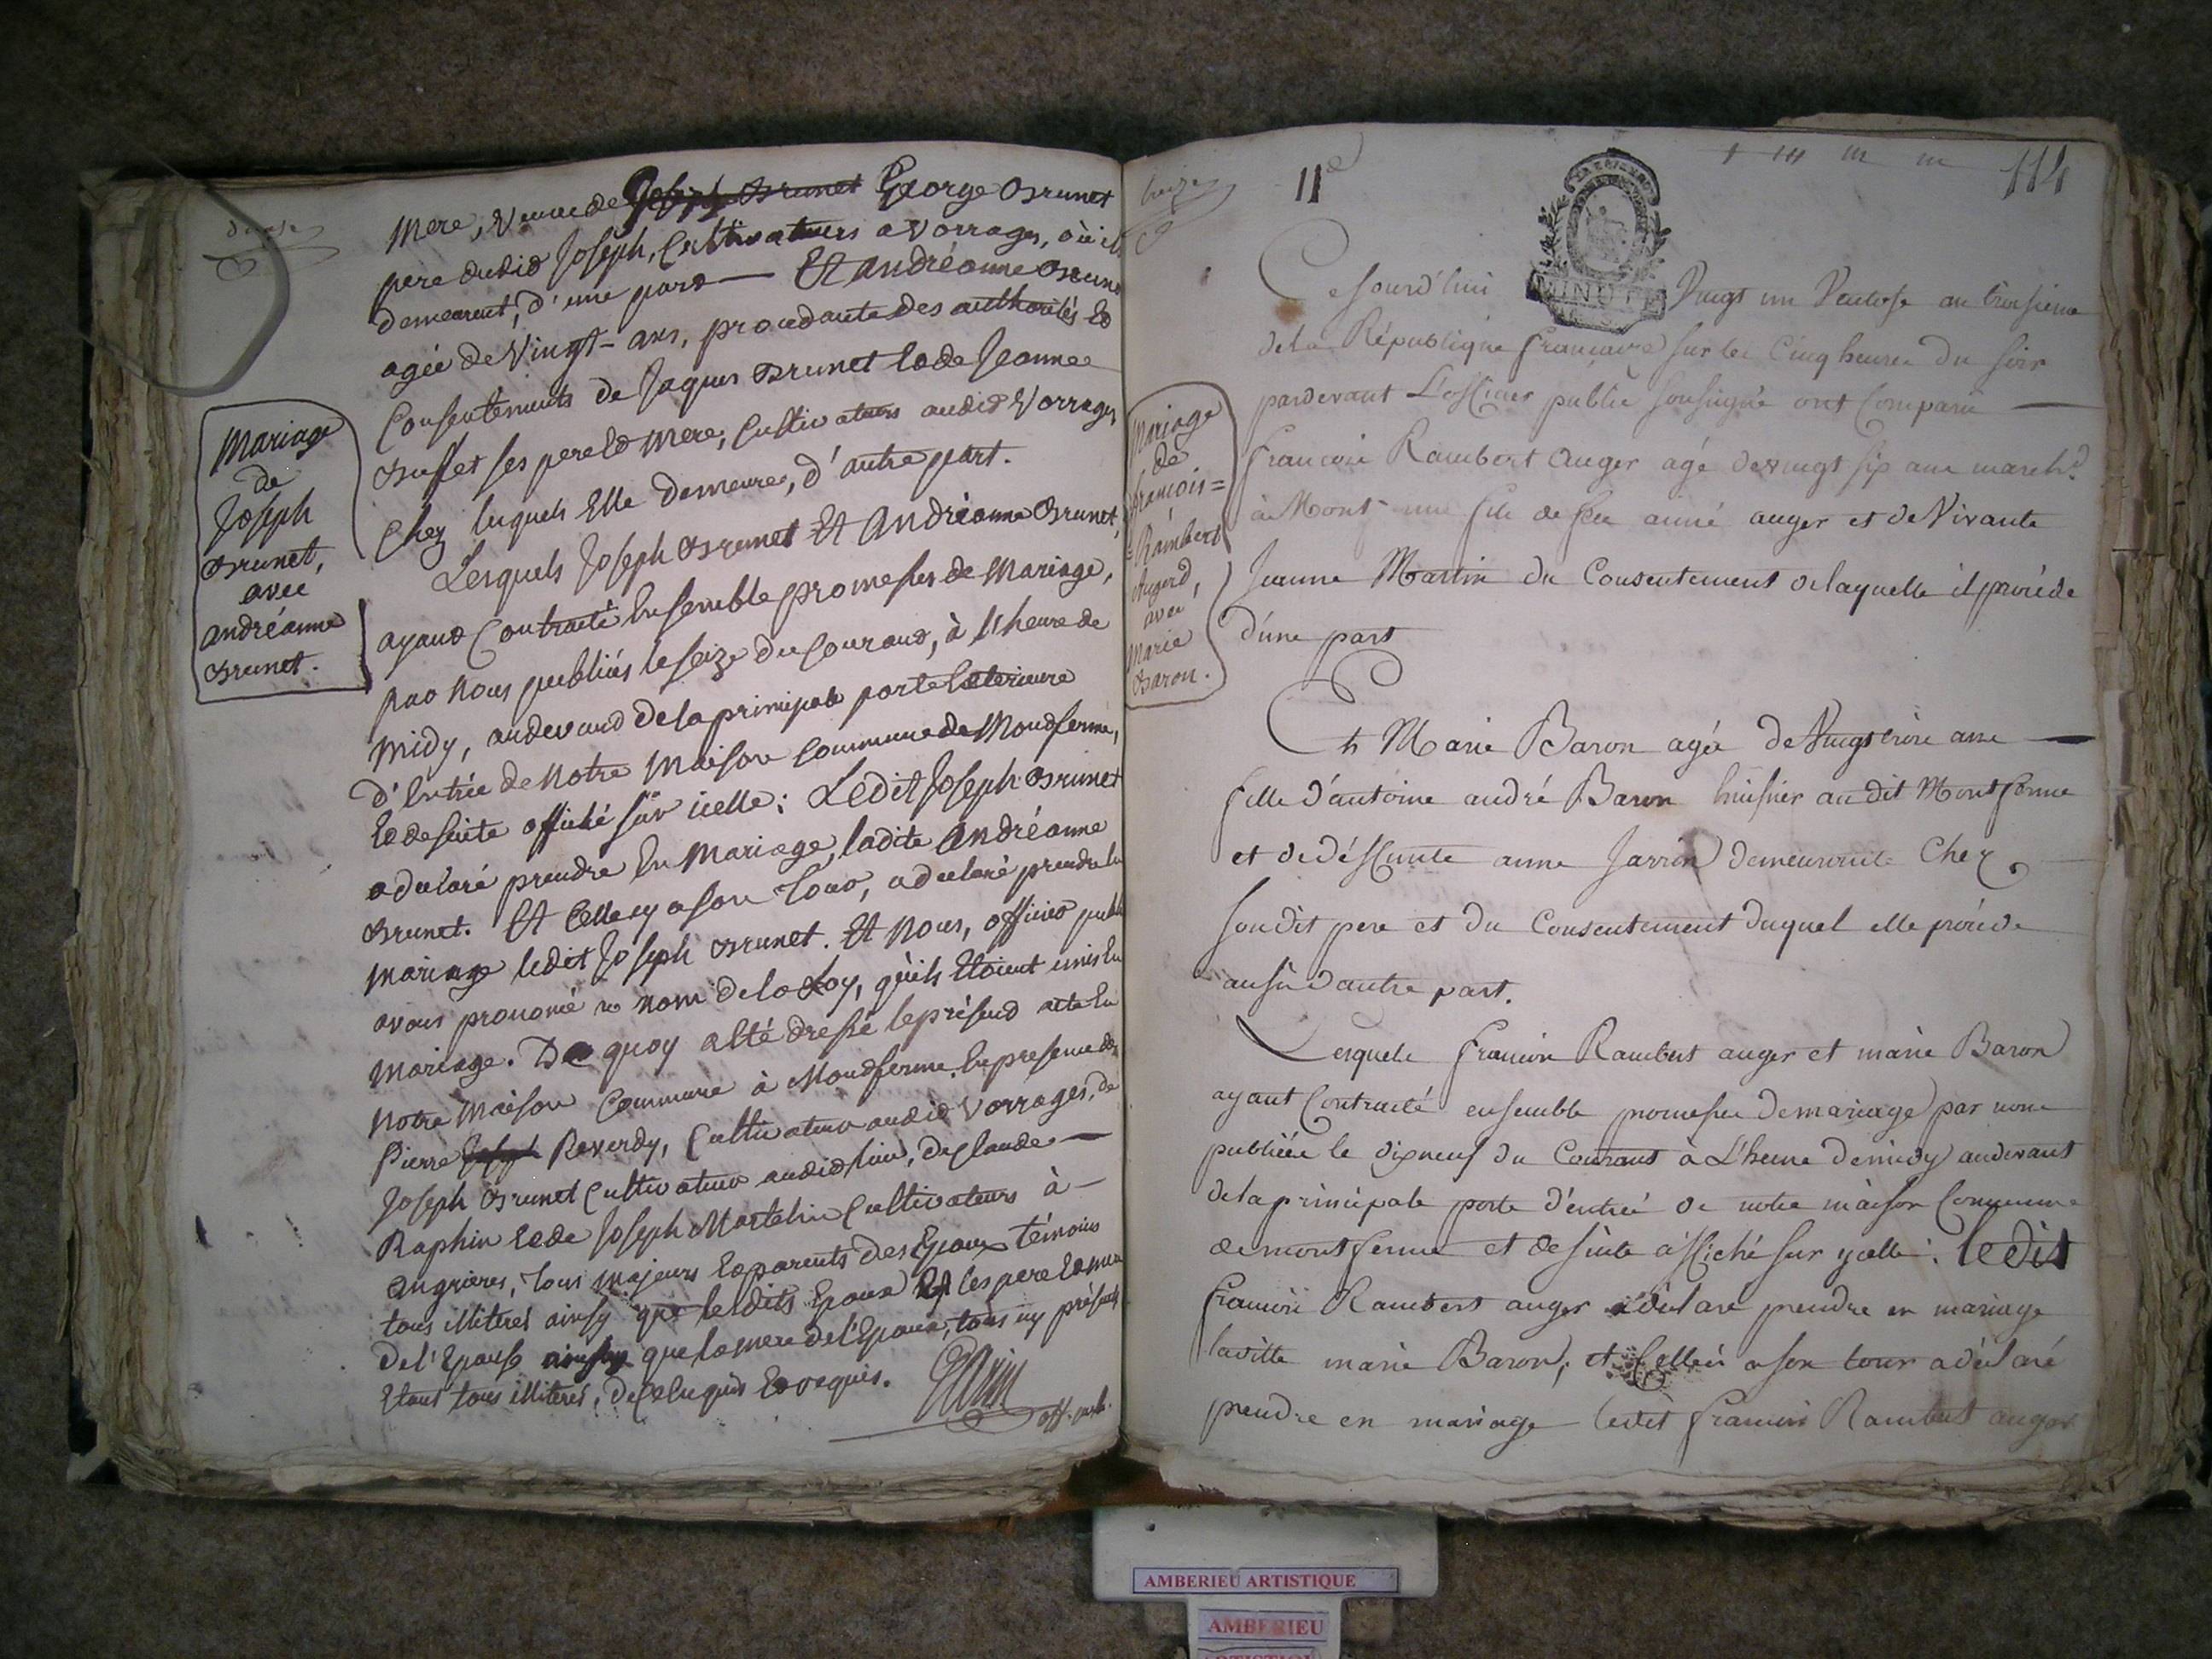 douze
Mere, Veuve de Joseph Brunet George Brunet
pere dudid Joseph, Cultivateurs a Vorrages, où ils
demeurent, d'une pard — Et Andréanne Brunet
agée de Vingt-ans, procedante des authorités Ed
Consentements de Jaques Brunet Ed de Jeanne
Buffet ses pere Ed mere, Cultivateurs audid Vorrages,
Chez lesquels Elle demeure, d'autre part.
Lesquels Joseph Brunet Et Andréanne Brunet,
ayand Contracté Ensemble promesses de Mariage,
par Nous publiées le seize du Courand, à l'heure de
midy, audevand de la principale porte Exterieure
d'Entrée de Notre Maison Commune de Mondferme,
Ed de suite affiché sur icelle: Ledit Joseph Brunet
a declaré prendre En Mariage, ladite Andréanne
Brunet. Et Celle cy a son Tour, a declaré prendre En
mariage ledit Joseph Brunet. Et Nous, officier public
avons prononcé au nom de la Loy, qu'ils Etoient unis En
Mariage. De quoy a Eté dressé le présend acte En
Notre Maison Commune à Mondferme. En presence de
Pierre Joseph Reverdy, Cultivateur audid Vorrages, de
Joseph Brunet Cultivateur audid lieu, de Claude
Raphin Ed de Joseph Martelin Cultivateurs à
Angrières, Tous Majeurs Ed parents des Epoux Témoins
tous illiterés ainsy que lesdits Epoux Et les pere Ed mere
de l'Epouse ainsy que la mere de l'Epoux, tous icy présents
Etant tous illiterés, de ce Enquis Ed requis.
off. pub.
Mariage
de
Joseph
Brunet,
avec
andréanne
Brunet.
treize
11e
114
MINUTE
Cejourd'hui Vingt un Ventose an troisieme
de la République francaise sur les Cinq heures du soir
pardevant L'officier public soussigné ont Comparu
francois Rambert Auger agé de vingt six ans march.d
à Mont fils de feu aimé auger et de Vivante
Jeanne Martin du Consentement de laquelle il procéde
d'une part
Et Marie Baron agée de Vingt trois ans
fille d'antoine andré Baron huissier au dit Montferme
et de déffunte anne Jarrin demeurante Chez
son dit pere et du Consentement duquel elle procéde
aussi d'autre part.
Lesquels francois Rambert auger et marie Baron
ayant Contracté ensemble promesses de mariage par nous
publiées le dixneuf du Courant a L'heure de midy audevant
de la principale porte d'entrée de notre maison Commune
de montferme et de suite affiché sur ycelle: ledit
francois Rambert auger a déclaré prendre en mariage
laditte marie Baron, et Celleci a son tour a déclaré
prendre en mariage ledit francois Rambert auger
Mariage
de
françois=
=Rambert
Augerd,
avec
Marie
Baron.
AMBERIEU ARTISTIQUE
AMBERIEU
ARTISTIQUE